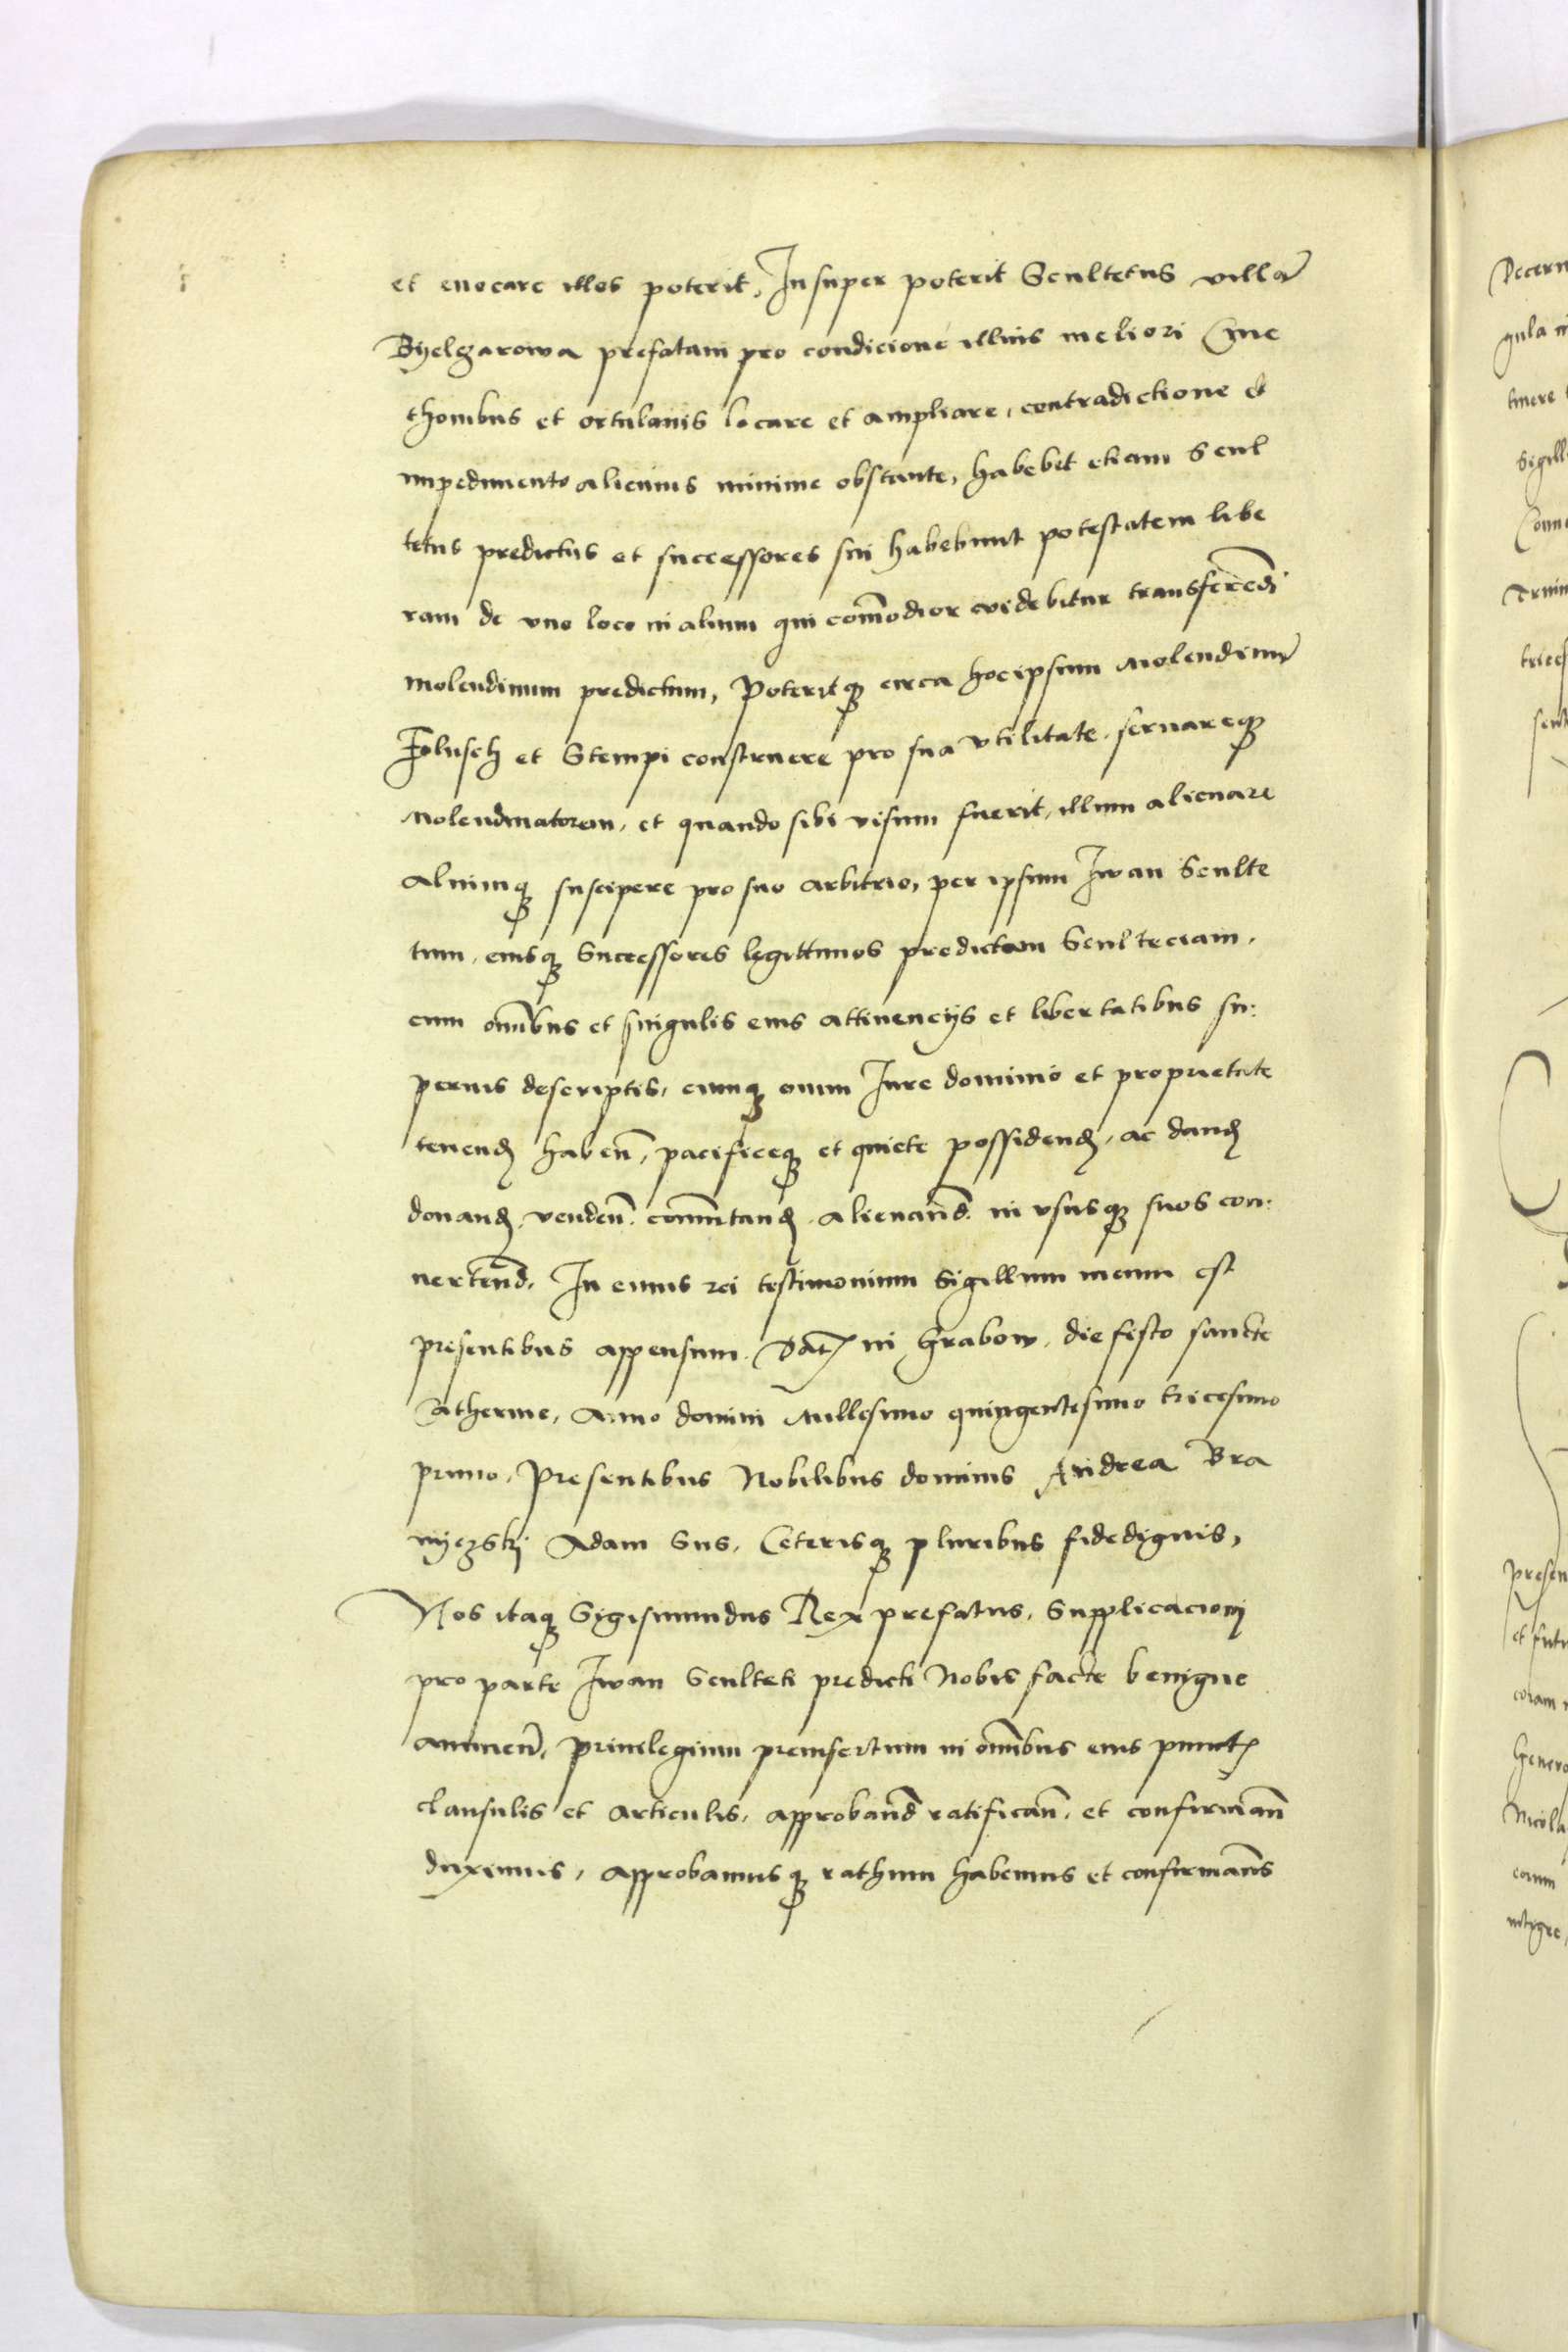 et euocare illos poterit, Insuper poterit Scultetus villā
Byelgarowa prefatam pro condicione illius meliori Cme
thonibus et ortulanis locare et ampliare, contradictione et
impedimento alicuius minime obstante, habebit etiam Scul
tetus predictus et successores sui habebunt potestatem libe
ram de vno loco in alium qui com̄odior videbitur transferendi
molendinum predictum, Poteritq circa hoc ipsum molendinū
Folusch et Stempi construere pro sua vtilitate seruareq
molendinatorem, et quando sibi visum fuerit, illum alienare
aliumq suscipere pro suo arbitrio, per ipsum Iwan Sculte
tum, eiusq Successores legittimos predictam Sculteciam,
cum om̄ibus et singulis eius attinencijs et libertatibus su:
perius descriptis, cumq omni Iure dominio et proprietate
tenend haben̄, pacificeq et quiete possidend, ac dand
donand, venden̄. commutand. alienand̄. in vsusq suos con:
uertend̄. In cuius rei testimonium Sigillum meum est
presentibus appensum. Dat in Grabow, die festo sancte
Catherine, Anno domini Millesimo quingentesimo tricesimo
primo, Presentibus Nobilibus dominis Andrea Bra
nyczski Adam Sus, Ceterisq pluribus fidedignis,
Nos itaq Sigismundus Rex prefatus, Supplicacioni
pro parte Iwan Sculteti predicti Nobis facte benigne
annuen̄, priuilegium preinsertum in om̄ibus eius punct
clausulis et articulis, approband̄ ratifican̄, et confirman̄
duximus, approbamusq rathum habemus et confirmam̄s
Decern